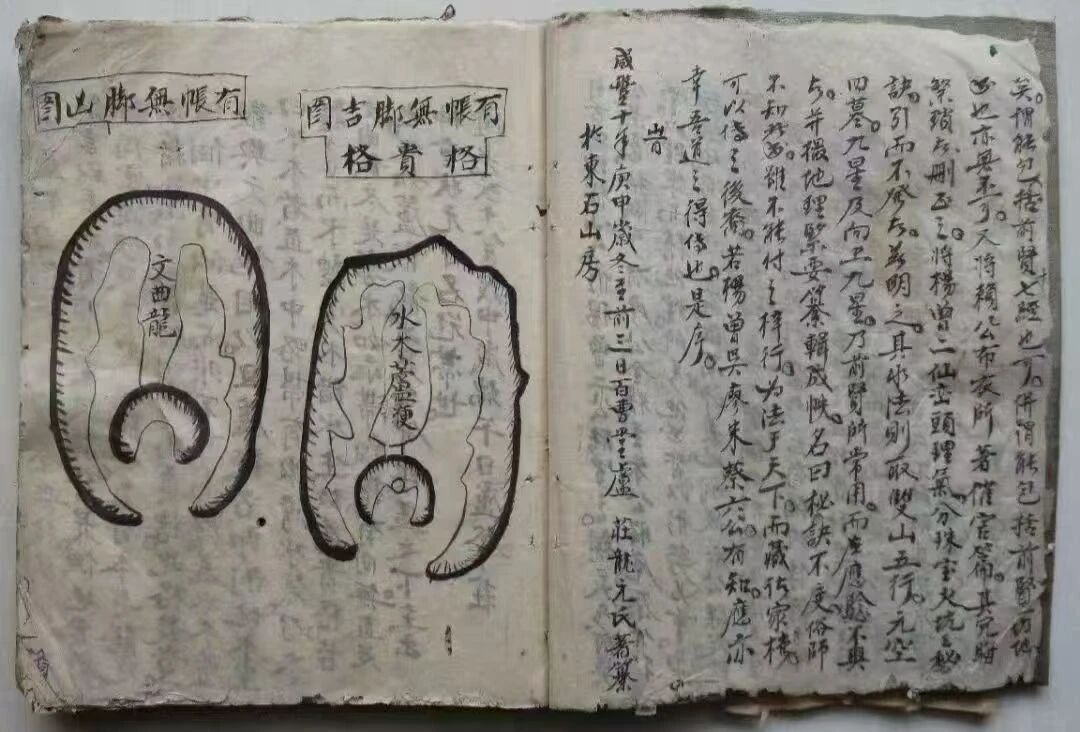 矣謂能包括前賢七經也可併謂能包括前賢
也亦無不可又將賴公布衣所著催官篇其冗晦
繁瑣者刪正之將楊曾二仙巒頭理氣分珠寶火坑之秘
訣引而不發者茲明之其水法則取雙山五行元空
四墓九星及向上九星乃前賢所常用而應驗不爽
者并撮地理緊要纂輯成帙名曰秘訣不度俗師
不知我雖不能付之梓行為法于天下而藏於家
可以傳之後裔若楊曾吳廖朱蔡六公有知應亦
幸吾道之得傳也是序
旹
咸豐十年庚申歲冬至前三日百曹廬莊龍元氏著纂
於東石山房
有帳無脚吉图
格貴格
水木蘆鞭
有帳無脚凶图
文曲龍